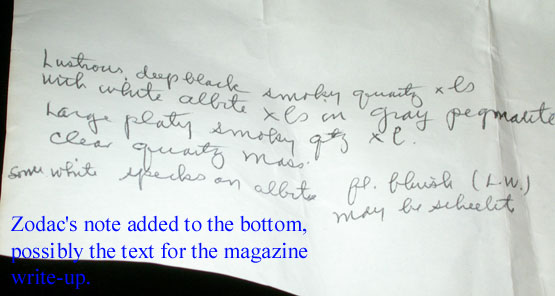 Lustrous, deep black smoky quartz xls
with white albite xls in gray pegmatite
Large platy smoky qtz xl.
clear quartz mass.
some white specks on albite fl. bluish (L.W.)
may be scheelit
Zodac's note added to the bottom,
possibly the text for the magazine
write-up.